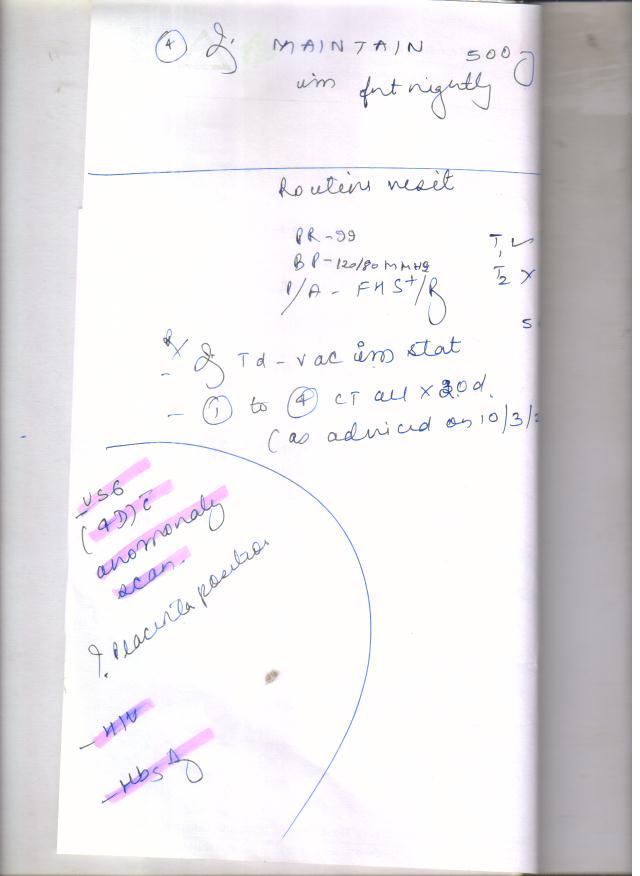 ④ Inj MAINTAIN 500
im fortnightly
Routine visit
PR - 99
BP - 120/80 MMHg
P/A - FHS+/R
T1 ✓
T2 X
S
Rx
- Inj Td-vac im stat
- ① to ④ CT all x 20d.
(as adviced on 10/3/2
- USG
(4D) c̄
anomonaly
scan.
? Placenta position
- HIV
- HbsAg